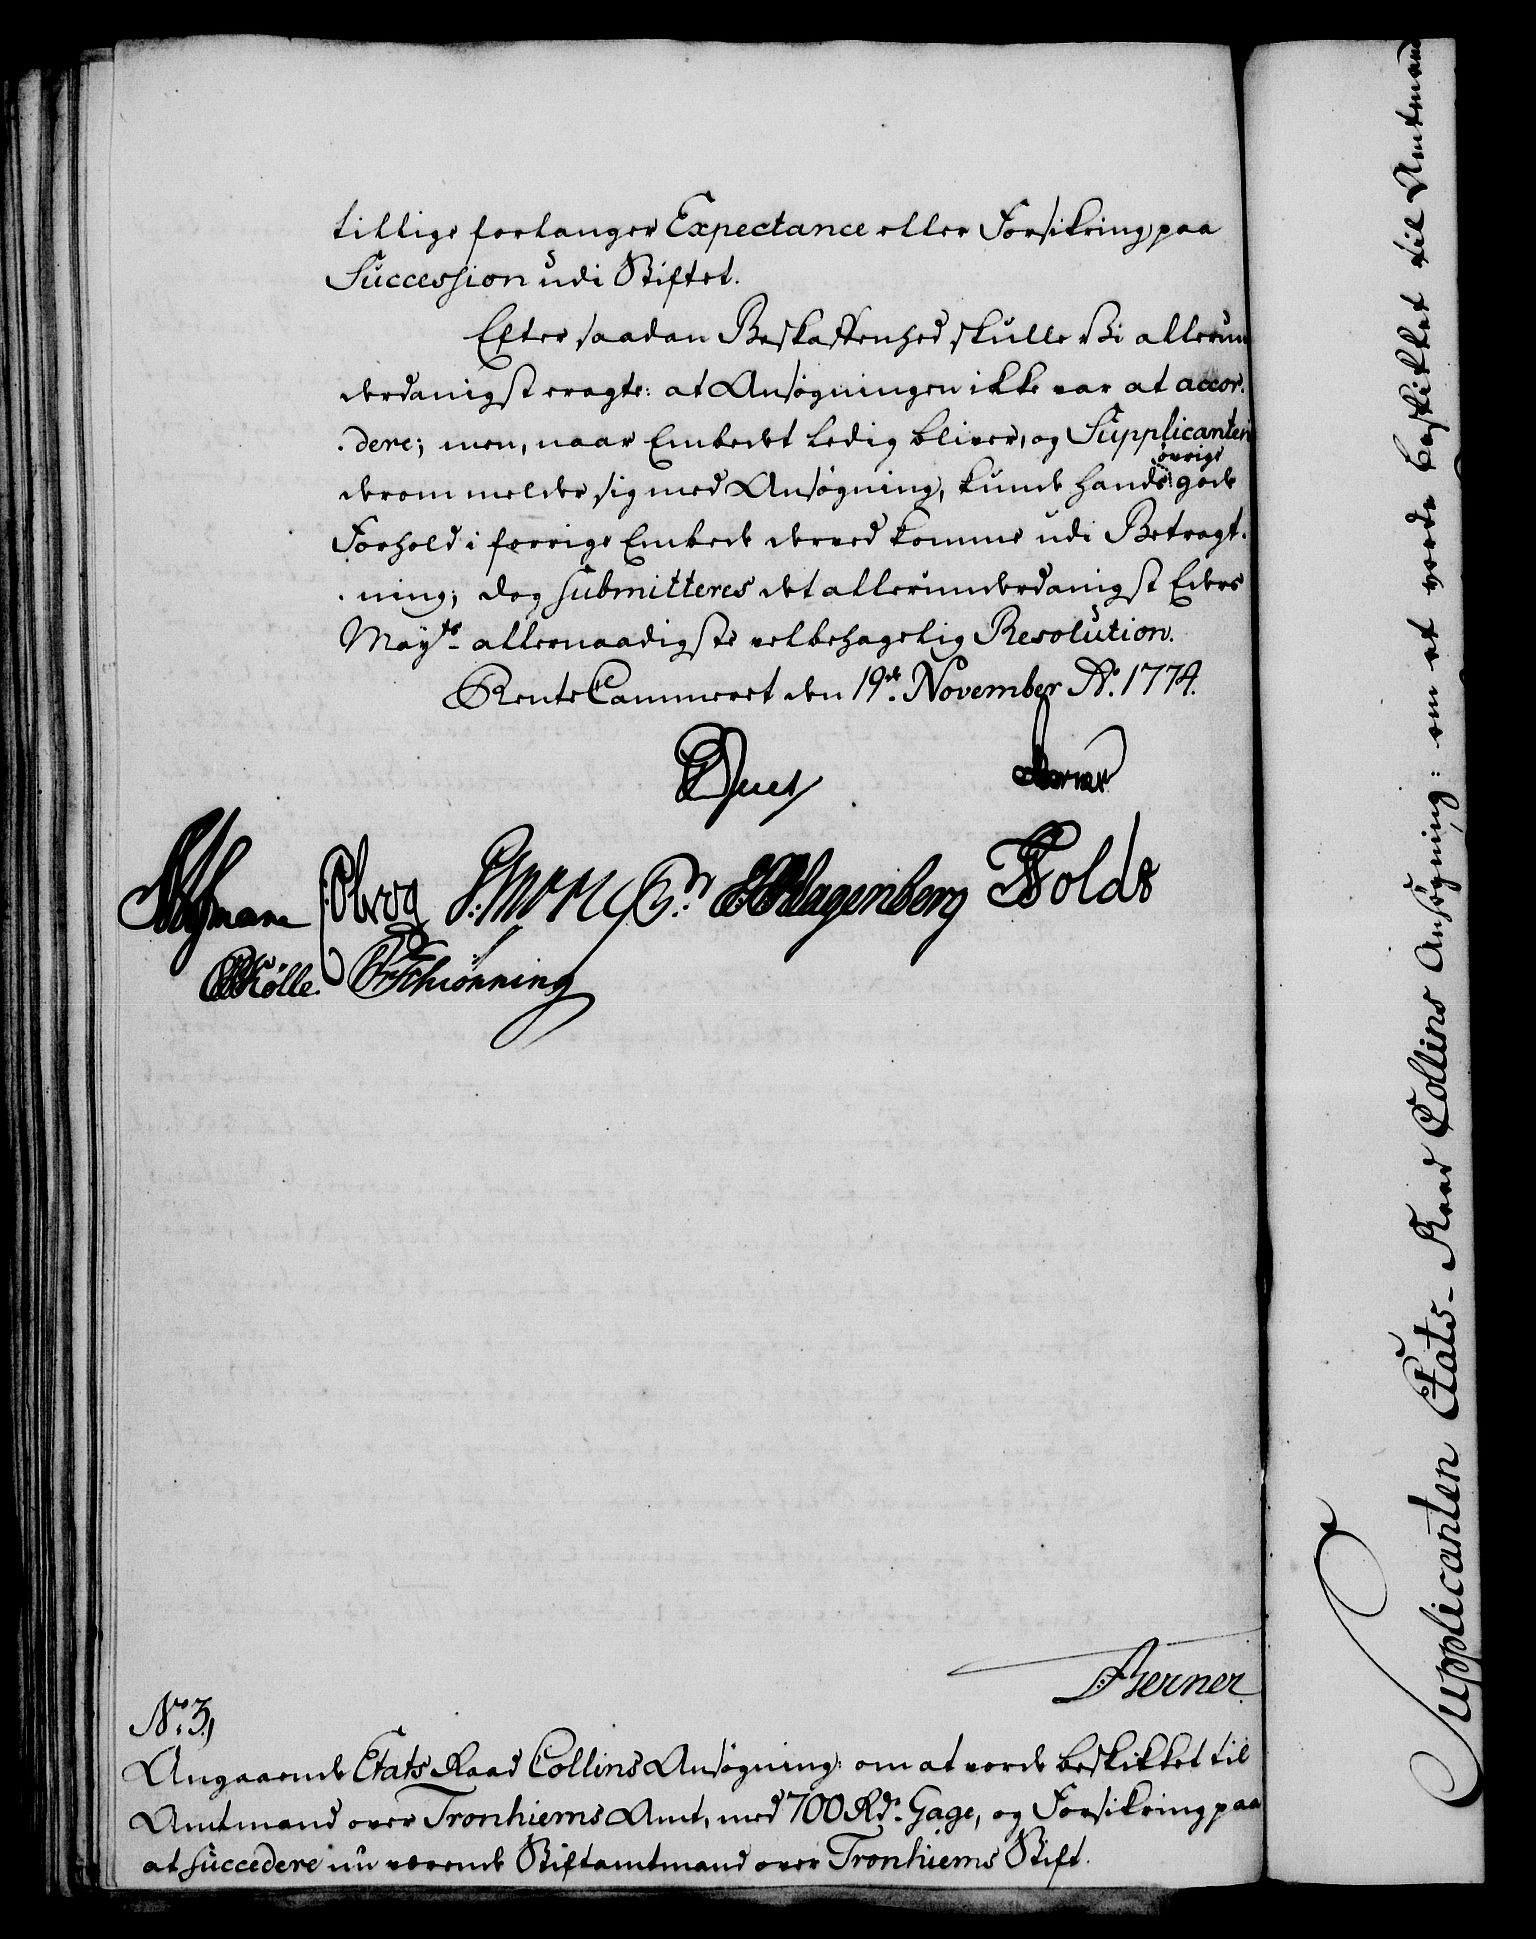 tillige forlanger Expectance eller Forsikring paa
Succession udi Stiftet.
Efter saadan Beskaffenhed skulle Vi allerun
derdanigst eragte: at Ansøgningen ikke var at accor-
dere; men, naar Embedet ledig bliver, og Supplicanten
øvrige
derom melder sig med Ansøgning, kunde hands gode
Forhold i forrige Embede derved komme udi Betragt-
ning; dog submitteres det allerunderdanigst Eders
Mayts allernaadigste velbehagelig Resolution.
RenteCammeret den 19de November Ao. 1774.
Berner
Hagenberg Holdt
Kølle. Schiønning
Berner
No. 3,
Angaaende Etats Raad Collins Ansøgning: om at vorde beskikket til
Amtmand over Tronhiems Amt, med 700 Rdr. Gage, og Forsikring paa
at succedere nu værende Stiftamtmand over Tronhiems Stift.
Supplicanten Etats-Raad Collins Ansøgning: om at vorde beskikket til Amtmand